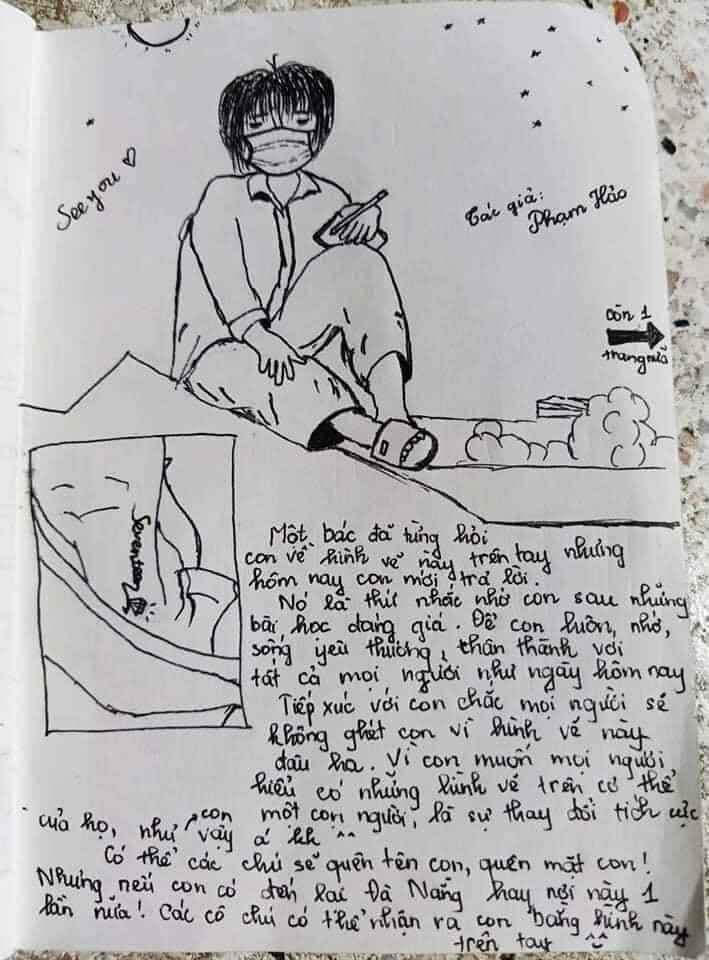 See you ♡
Tác giả:
Phạm Hảo
còn 1
trang nữa
Seventeen
Một bác đã từng hỏi
con về hình vẽ này trên tay nhưng
hôm nay con mới trả lời.
Nó là thứ nhắc nhở con sau những
bài học đáng giá. Để con luôn, nhớ,
sống yêu thương, chân thành với
tất cả mọi người như ngày hôm nay
Tiếp xúc với con chắc mọi người sẽ
không ghét con vì hình vẽ này
đâu ha. Vì con muốn mọi người
hiểu có những hình vẽ trên cơ thể
một con người, là sự thay đổi tích cực
của họ, như con vậy á hh ^^
Có thể các chú sẽ quên tên con, quên mặt con!
Nhưng nếu con có đến lại Đà Nẵng hay nơi này 1
lần nữa! Các cô chú có thể nhận ra con bằng hình này
trên tay